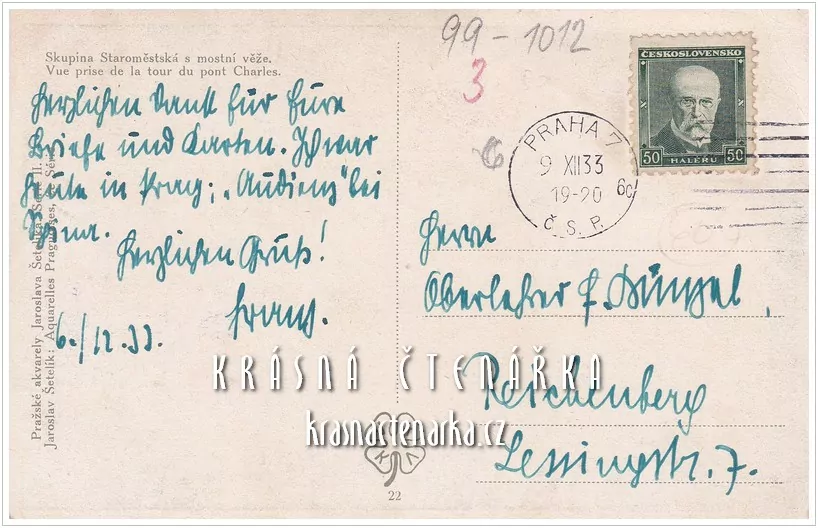 99-1012
3
Skupina Staroměstská s mostní věže.
Vue prise de la tour du pont Charles.
ČESKOSLOVENSKO
50 HALÉŘU 50
PRAHA 7
9 XII 33
19-20
6c
Č. S. P.
Herzlichen Dank für Eure
Briefe und Karten. Ich war
heute in Prag; „Audienz" bei
Herzlichen Gruß!
Franz.
6./12.33.
Herrn
Oberlehrer F.
Reichenberg
Lessingstr. 7.
Pražské akvarely Jaroslava Šetelíka: Serie II.
Jaroslav Šetelík: Aquarelles Praguoises,
KRÁSNÁ ČTENÁŘKA
krasnactenarka.cz
22